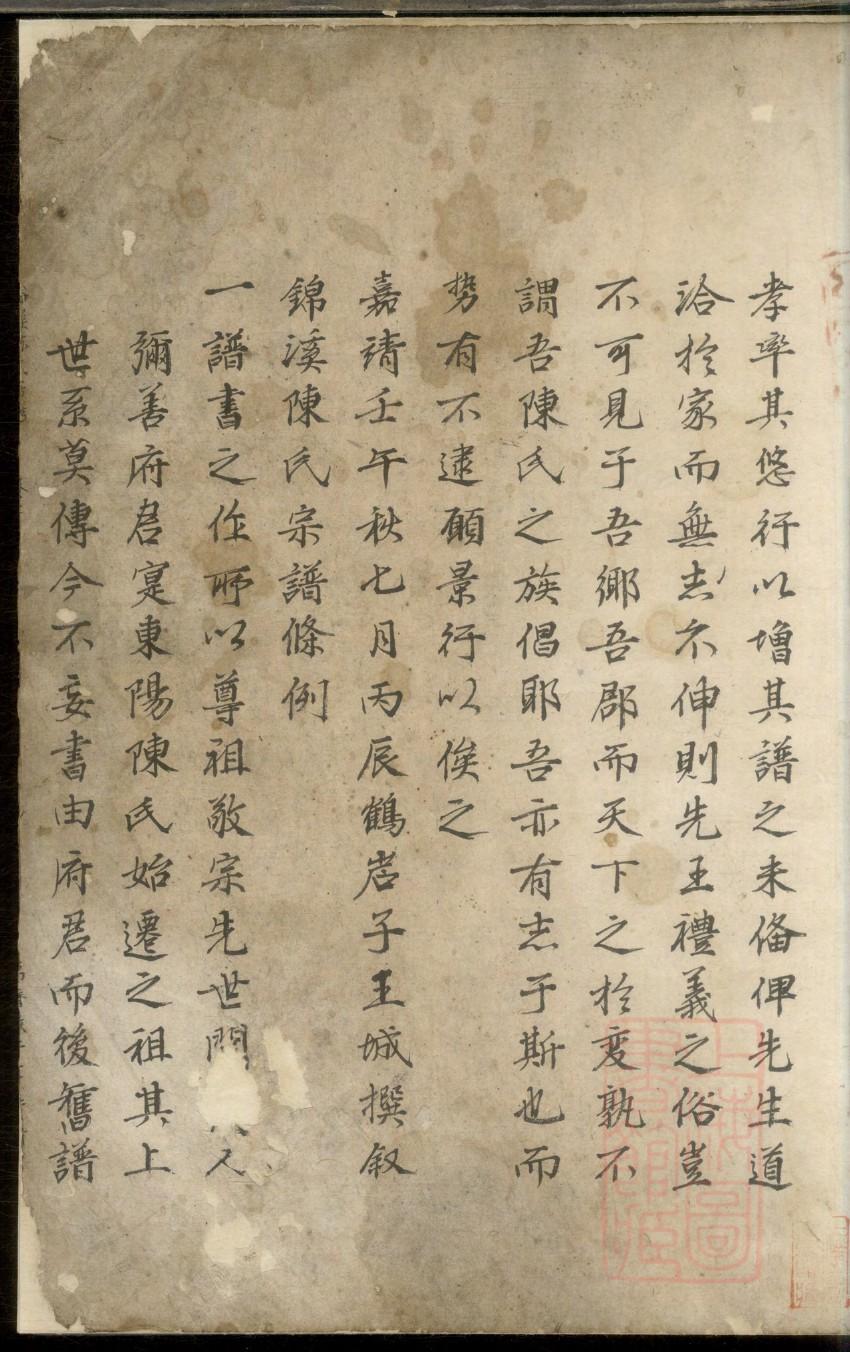 孝率其悠行以增其譜之未俻俾先生道
洽扵家而無志不伸則先王禮義之俗豈
不可見于吾鄉吾郡而天下之扵变孰不
謂吾陳氏之族倡耶吾亦有志于斯也而
势有不逮願景行以俟之
嘉靖壬午秋七月丙辰鶴岩子王城撰叙
錦溪陳氏宗譜條例
一譜書之作所以尊祖敬宗先世
彌善府君寔東陽陳氏始遷之祖其上
世系莫傳今不妄書由府君而後舊譜